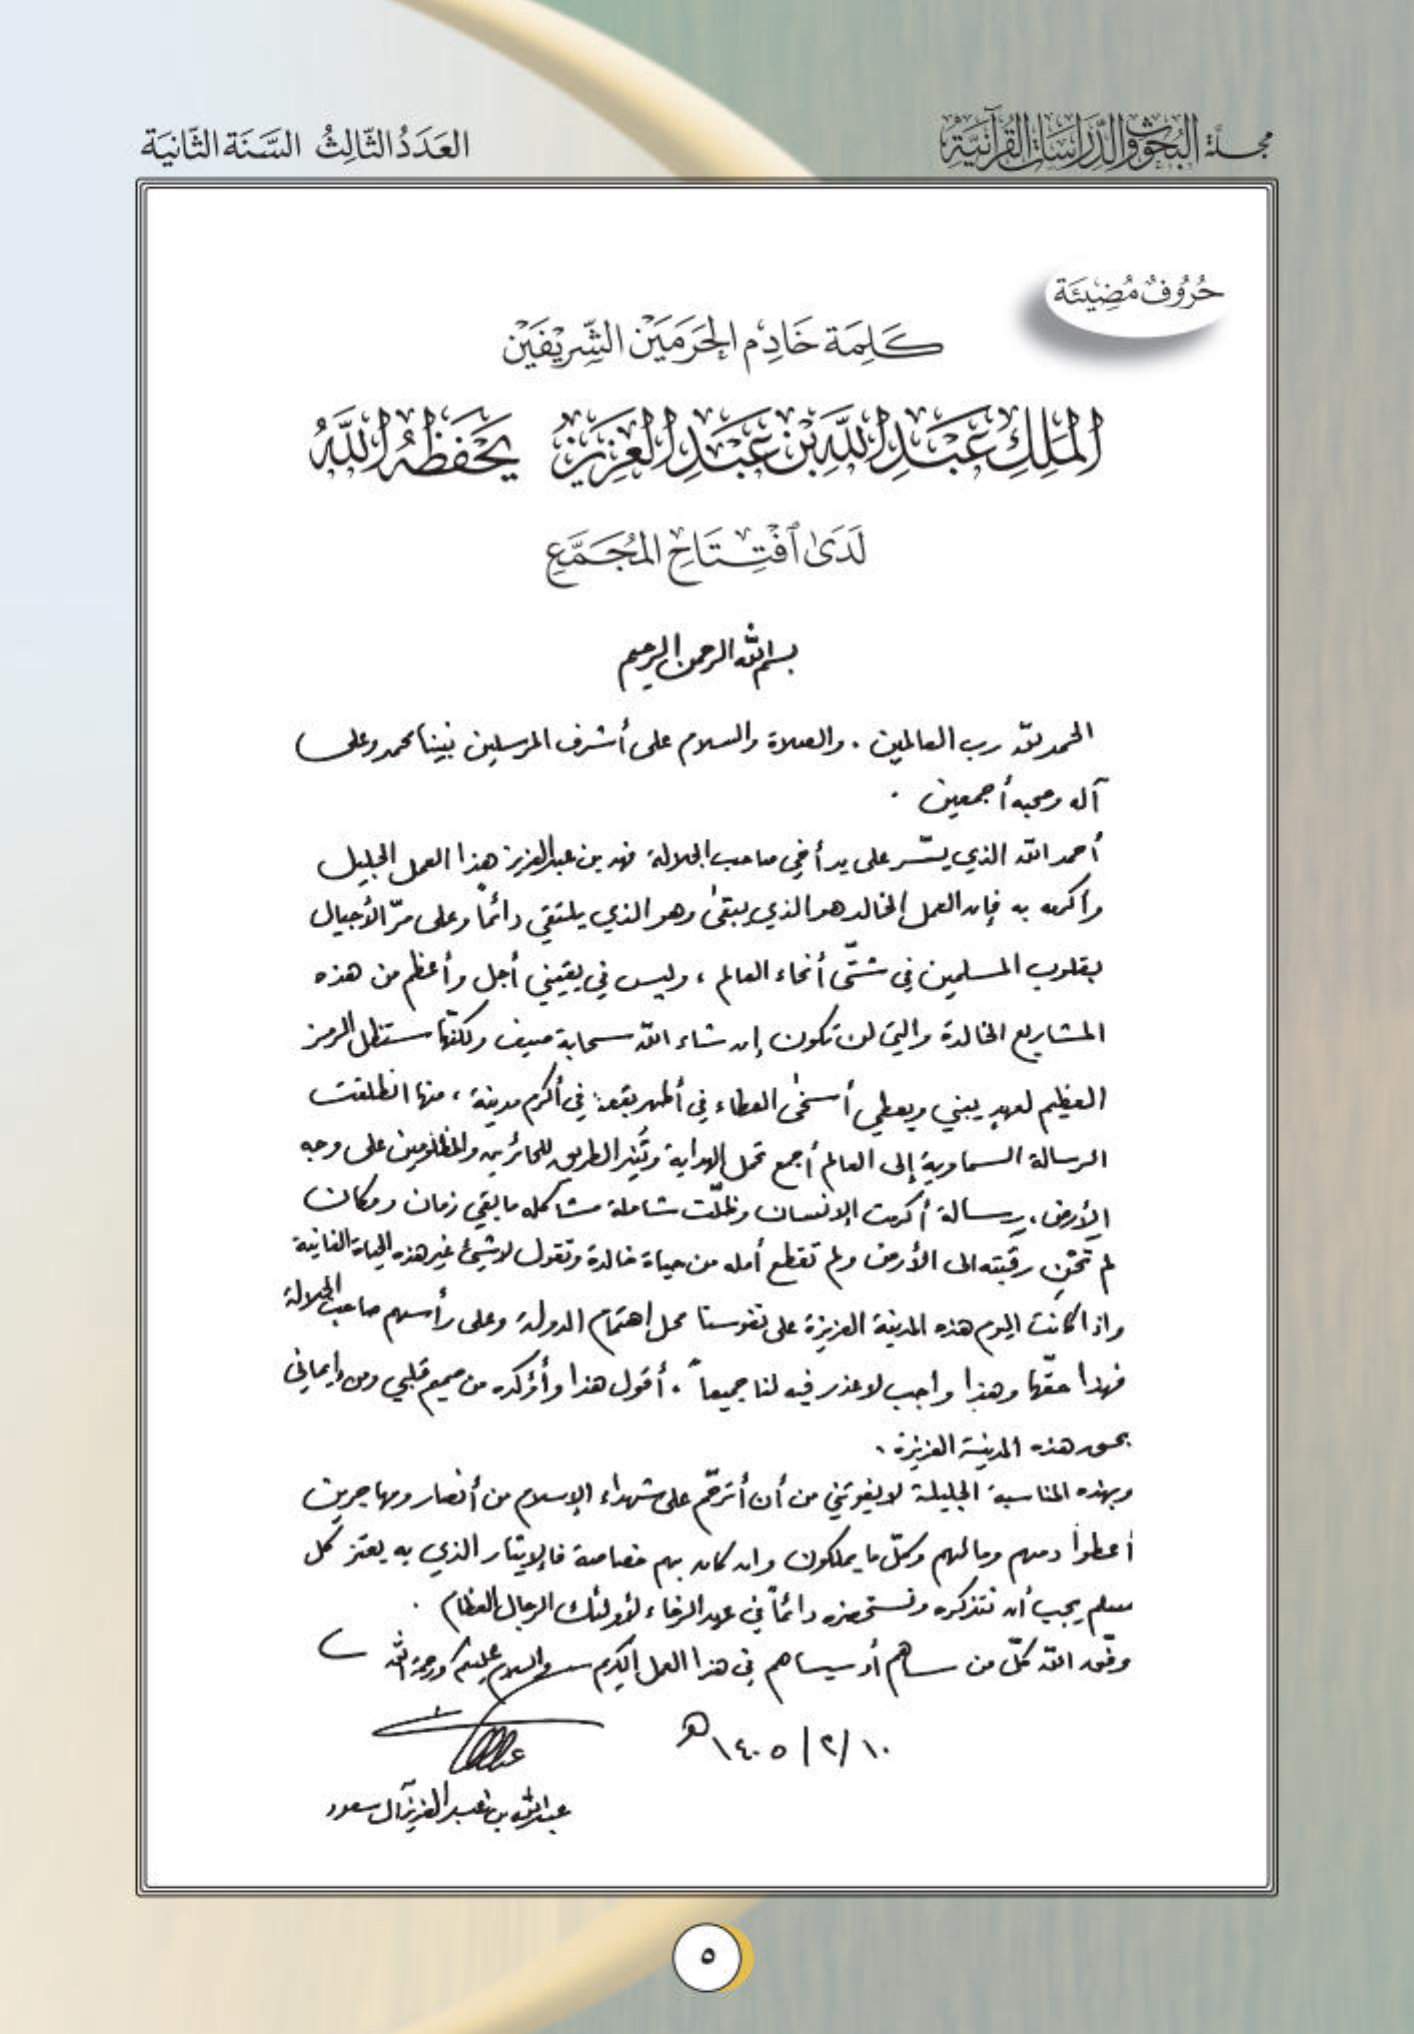 مجلة البحوث والدراسات القرآنية
العَدَدُ الثَّالِثُ السَّنَة الثَّانِيَة
حُرُوفٌ مُضِيئَة
كَلِمَة خَادِم الحَرَمَيْن الشَّرِيفَيْن
المَلِكِ عَبْدِ اللَّهِ بْن عَبْدِ العَزِيز يَحْفَظُهُ اللَّهُ
لَدَى ٱفْتِتَاحِ المُجَمَّعِ
بسم الله الرحمن الرحيم
الحمد لله رب العالمين . والصلاة والسلام على أشرف المرسلين نبينا محمد وعلى
آله وصحبه أجمعين .
أحمد الله الذي يسّر على يد أخي صاحب الجلالة فهد بن عبدالعزيز هذا العمل الجليل
وأكرمه به فإن العمل الخالد هو الذي يبقى وهو الذي يلتقي دائماً وعلى مرّ الأجيال
بقلوب المسلمين في شتّى أنحاء العالم ، وليس في يقيني أجل وأعظم من هذه
المشاريع الخالدة والتي لن تكون إن شاء الله سحابة صيف ولكنّها ستظل الرمز
العظيم لعهدٍ يبني ويعطي أسخى العطاء في أطهر بقعة في أكرم مدينة ، منها انطلقت
الرسالة السماوية إلى العالم أجمع تحمل الهداية وتُنير الطريق للحائرين والمظلومين على وجه
الأرض ، رسالة أكرمت الإنسان وظلّت شاملة مشاكله ما بقي زمان ومكان
لم تحْنِ رقبته الى الأرض ولم تقطع أمله من حياة خالدة وتقول لا شيئ غير هذه الحياة الفانية
واذا كانت اليوم هذه المدينة العزيزة على نفوسنا محل اهتمام الدولة وعلى رأسهم صاحب الجلالة
فهذا حقّها وهذا واجب لا عذر فيه لنا جميعاً . أقول هذا وأؤكده من صميم قلبي ومن إيماني
بحق هذه المدينة العزيزة .
وبهذه المناسبة الجليلة لا يفوتني من أن أترحّم على شهداء الإسلام من أنصار ومهاجرين
أعطوا دمهم ومالهم وكلّ ما يملكون وان كان بهم خصاصة فالإيثار الذي به يعتز كل
مسلم يجب أن نتذكره ونستحضره دائماً في عهد الرخاء لأولئك الرجال العظام .
وفّق الله كلّ من ساهم أو سيساهم في هذا العمل الكريم والسلام عليكم ورحمة الله
١٤٠٥/٢/١٠هـ
عبدالله بن عبدالعزيز آل سعود
٥